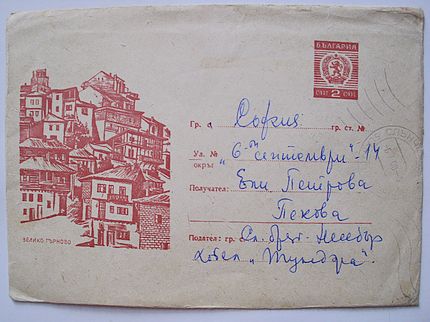 БЪЛГАРИЯ
СТ. 2 СТ.
Гр. с. София гр. ст. №
Ул. № „6ти септември“ - 14
окръг
Получател: Ели Петрова
Пекова
Подател: гр. с. Сл. бряг - Несебър
Хотел „Тундра“.
ВЕЛИКО ТЪРНОВО